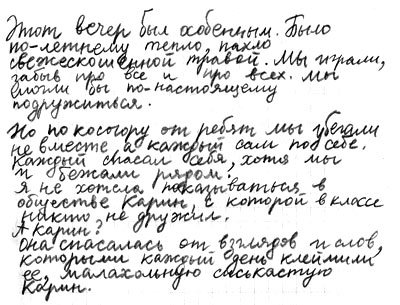 Этот вечер был особенным. Было
по-летнему тепло, пахло
свежескошенной травой. Мы играли,
забыв про все и про всех. Мы
могли бы по-настоящему
подружиться.
Но по косогору от ребят мы убегали
не вместе, а каждый сам по себе.
Каждый спасал себя, хотя мы
и бежали рядом.
Я не хотела показываться в
обществе Карин, с которой в классе
никто не дружил.
А Карин?
Она спасалась от взглядов и слов,
которыми каждый день клеймили
ее, малахольную сиськастую
Карин.